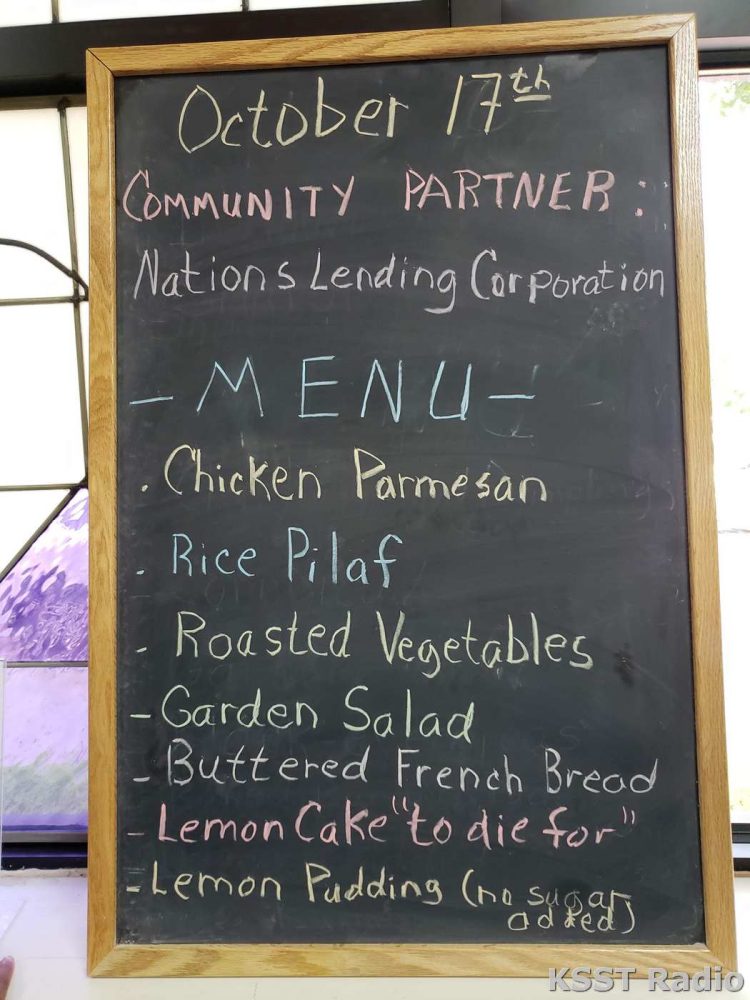 October 17th
COMMUNITY PARTNER:
Nations Lending Corporation
- MENU -
. Chicken Parmesan
. Rice Pilaf
- Roasted Vegetables
- Garden Salad
- Buttered French Bread
- Lemon Cake "to die for"
- Lemon Pudding (no sugar
added)
KSST Radio